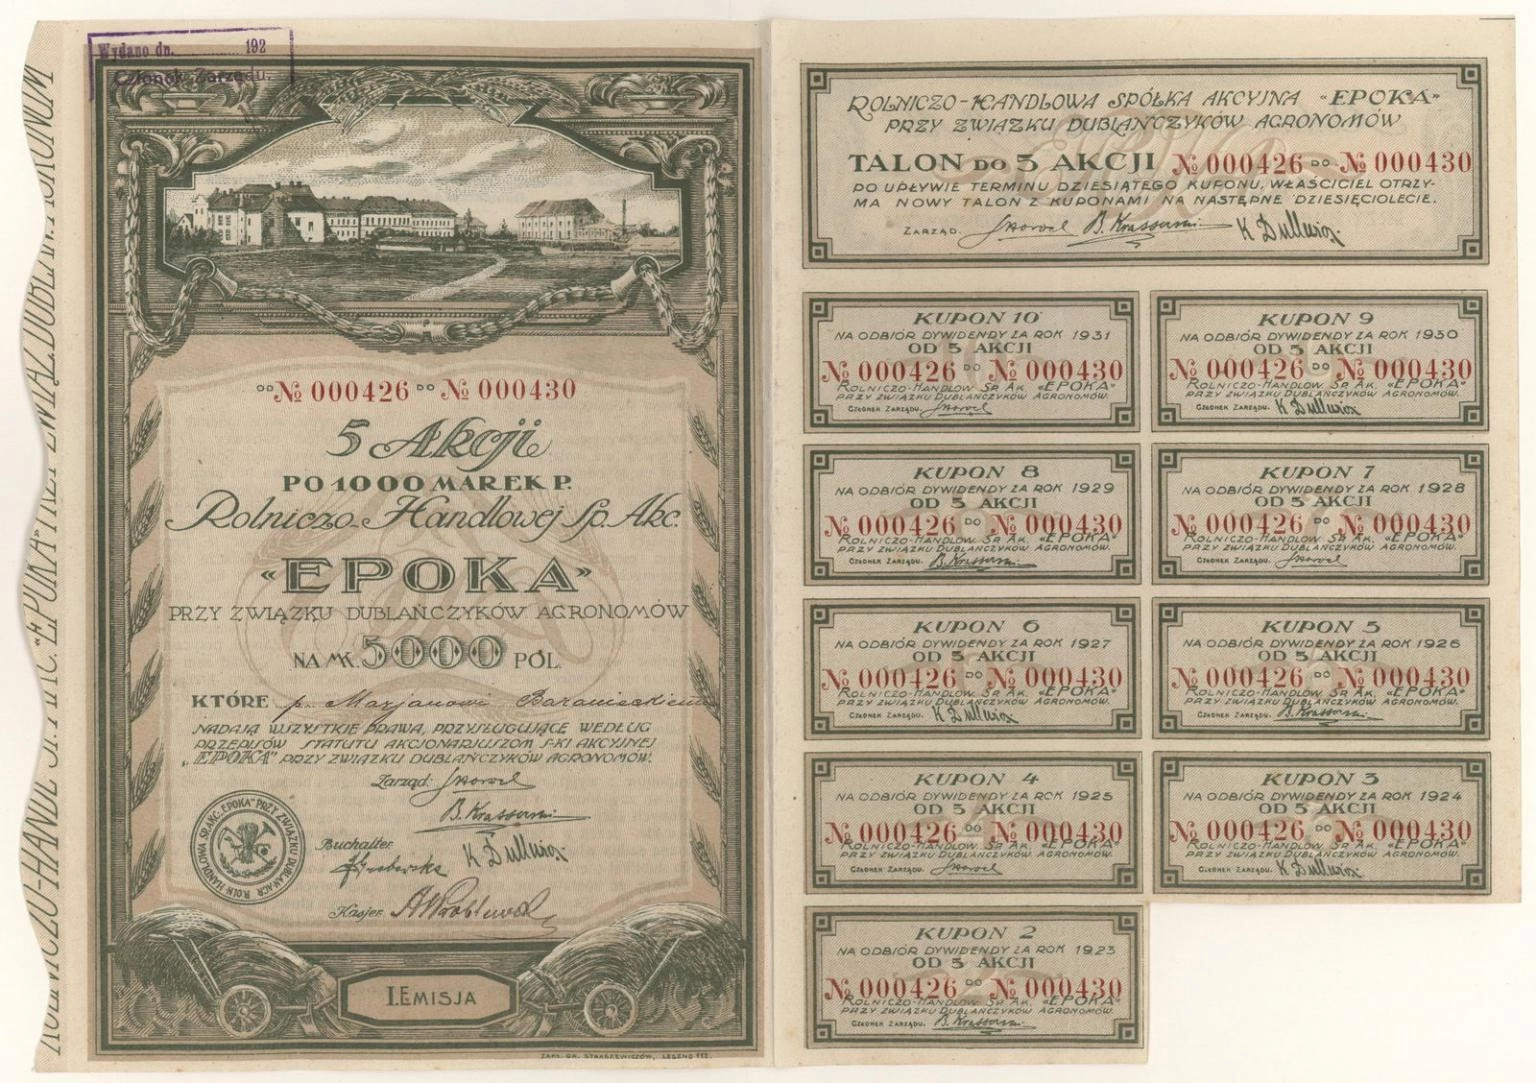 Wydano dn. 192
Członek Zarządu.
OD № 000426 DO № 000430
5 Akcji
PO 1000 MAREK P.
Rolniczo-Handlowej Sp. Akc.
«EPOKA»
PRZY ZWIĄZKU DUBLAŃCZYKÓW AGRONOMÓW
NA MK. 5000 POL.
KTÓRE p. Marjanowi
NADAJĄ WSZYSTKIE PRAWA, PRZYSŁUGUJĄCE WEDŁUG
PRZEPISÓW STATUTU AKCJONARJUSZOM S-KI AKCYJNEJ
„EPOKA" PRZY ZWIĄZKU DUBLAŃCZYKÓW AGRONOMÓW.
Zarząd:
B. Krassowski
Buchalter
K Dullusisz
Kasjer
ROLN. HANDLOWA SP. AKC. „EPOKA" PRZY ZWIĄZKU DUBLAN. AGR.
I. EMISJA
ZAKŁ. GR. STRASZEWICZÓW, LESZNO 112.
ROLNICZO-HANDL. SP. AKC. „EPOKA" PRZY ZWIĄZ. DUBLAN. AGRONOM
ROLNICZO-HANDLOWA SPÓŁKA AKCYJNA «EPOKA»
PRZY ZWIĄZKU DUBLAŃCZYKÓW AGRONOMÓW
TALON DO 5 AKCJI № 000426 DO № 000430
PO UPŁYWIE TERMINU DZIESIĄTEGO KUPONU, WŁAŚCICIEL OTRZY-
MA NOWY TALON Z KUPONAMI NA NASTĘPNE DZIESIĘCIOLECIE.
ZARZĄD: B. Krassowski K Dullusisz
KUPON 10
NA ODBIÓR DYWIDENDY ZA ROK 1931
OD 5 AKCJI
№ 000426 DO № 000430
ROLNICZO-HANDLOW. SP. AK. «EPOKA»
PRZY ZWIĄZKU DUBLAŃCZYKÓW AGRONOMÓW.
CZŁONEK ZARZĄDU.
KUPON 9
NA ODBIÓR DYWIDENDY ZA ROK 1930
OD 5 AKCJI
№ 000426 DO № 000430
ROLNICZO-HANDLOW. SP. AK. «EPOKA»
PRZY ZWIĄZKU DUBLAŃCZYKÓW AGRONOMÓW.
CZŁONEK ZARZĄDU. K Dullusisz
KUPON 8
NA ODBIÓR DYWIDENDY ZA ROK 1929
OD 5 AKCJI
№ 000426 DO № 000430
ROLNICZO-HANDLOW. SP. AK. «EPOKA»
PRZY ZWIĄZKU DUBLAŃCZYKÓW AGRONOMÓW.
CZŁONEK ZARZĄDU. B. Krassowski
KUPON 7
NA ODBIÓR DYWIDENDY ZA ROK 1928
OD 5 AKCJI
№ 000426 DO № 000430
ROLNICZO-HANDLOW. SP. AK. «EPOKA»
PRZY ZWIĄZKU DUBLAŃCZYKÓW AGRONOMÓW.
CZŁONEK ZARZĄDU.
KUPON 6
NA ODBIÓR DYWIDENDY ZA ROK 1927
OD 5 AKCJI
№ 000426 DO № 000430
ROLNICZO-HANDLOW. SP. AK. «EPOKA»
PRZY ZWIĄZKU DUBLAŃCZYKÓW AGRONOMÓW.
CZŁONEK ZARZĄDU. K Dullusisz
KUPON 5
NA ODBIÓR DYWIDENDY ZA ROK 1926
OD 5 AKCJI
№ 000426 DO № 000430
ROLNICZO-HANDLOW. SP. AK. «EPOKA»
PRZY ZWIĄZKU DUBLAŃCZYKÓW AGRONOMÓW.
CZŁONEK ZARZĄDU. B. Krassowski
KUPON 4
NA ODBIÓR DYWIDENDY ZA ROK 1925
OD 5 AKCJI
№ 000426 DO № 000430
ROLNICZO-HANDLOW. SP. AK. «EPOKA»
PRZY ZWIĄZKU DUBLAŃCZYKÓW AGRONOMÓW.
CZŁONEK ZARZĄDU.
KUPON 3
NA ODBIÓR DYWIDENDY ZA ROK 1924
OD 5 AKCJI
№ 000426 DO № 000430
ROLNICZO-HANDLOW. SP. AK. «EPOKA»
PRZY ZWIĄZKU DUBLAŃCZYKÓW AGRONOMÓW.
CZŁONEK ZARZĄDU. K Dullusisz
KUPON 2
NA ODBIÓR DYWIDENDY ZA ROK 1923
OD 5 AKCJI
№ 000426 DO № 000430
ROLNICZO-HANDLOW. SP. AK. «EPOKA»
PRZY ZWIĄZKU DUBLAŃCZYKÓW AGRONOMÓW.
CZŁONEK ZARZĄDU. B. Krassowski